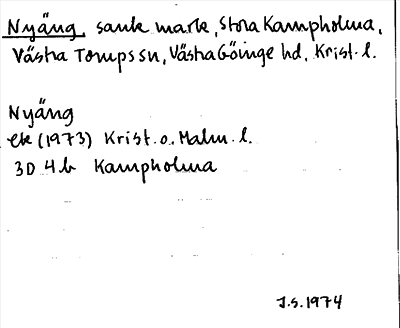 Nyäng, sank mark, Stora Kampholma,
Västra Torups sn, Västra Göinge hd, Krist. l.
Nyäng
ek (1973) Krist. o. Malm. l.
3D 4b Kampholma
J.S. 1974